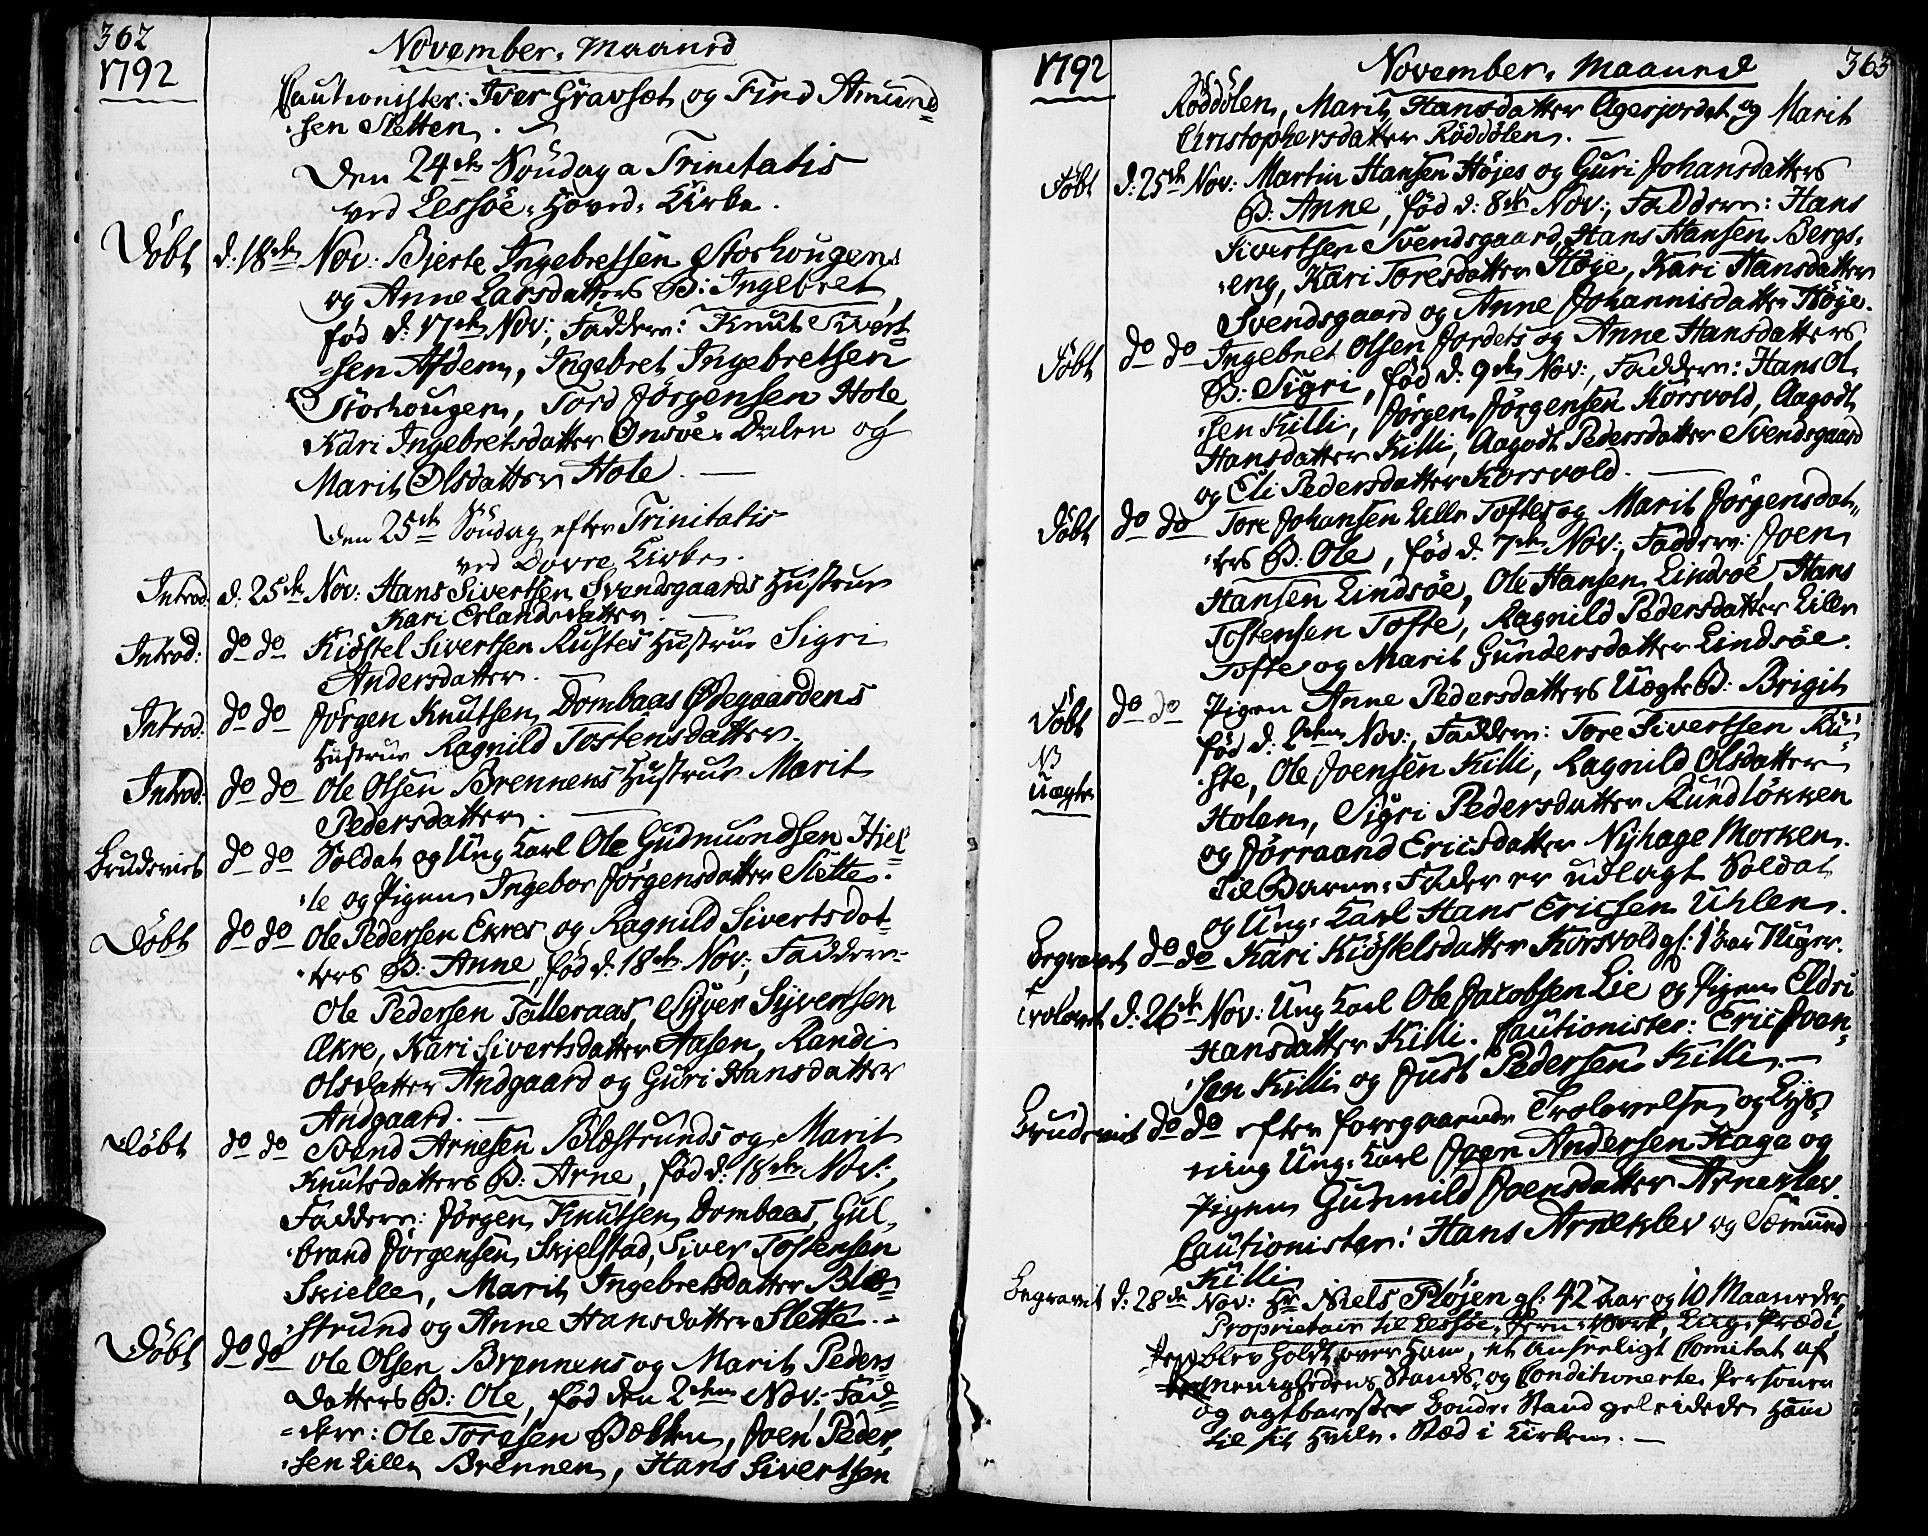 362
1792
November-Maaned
Cautionister: Iver Gravsæt og Find Amund=
=sen Sletten.
Den 24de Søndag a Trinitatis
ved Lessøe-Hoved-Kirke.
Døbt d: 18de Nov: Bjerte Ingebretsen Storhougens
og Anne Larsdatters B: Ingebret,
fød d: 17de Nov:, Faddere: Knut Sivert=
=sen Afdem, Ingebret Ingebretsen
Storhougen, Tord Jørgensen Hole
Kari Ingebretsdatter Onsøe-Dalen og
Marit Olsdatter Hole.
Den 25de Søndag efter Trinitatis
ved Dovre Kirke.
Introd: d: 25de Nov: Hans Sivertsen Svendsgaards Hustrue
Kari Erlandsdatter.
Introd: do do Kiøstel Sivertsen Rustes Hustrue Sigri
Andersdatter.
Introd: do do Jørgen Knutsen Dombaas Ødegaardens
Hustrue Ragnild Tostensdatter.
Introd: do do Ole Olsen Brennens Hustrue Marit
Pedersdatter.
Brudeviet do do Soldat og Ung Karl Ole Gudmundsen Hiel=
=le og Pigen Ingebor Jørgensdatter Slette.
Døbt do do Ole Pedersen Ekres og Ragnild Sivertsdat=
ters B: Anne, fød d: 18de Nov:, Faddere
Ole Pedersen Talleraas, Syver Syversen
Ekre, Kari Sivertsdatter Aasen, Randi
Olsdatter Andgaard og Guri Hansdatter
Andgaard.
Døbt do do Svend Arnesen Blæstrunds og Marit
Knutsdatters B: Arne, fød d: 18de Nov:,
Faddere: Jørgen Knutsen Dombaas, Gul,
=brand Jørgensen Skjelstad, Siver Tostensen
Skielle, Marit Ingebretsdatter Blæ=
=strund og Anne Hansdatter Slette.
Døbt do do Ole Olsen Brennens og Marit Peders
datters B: Ole, fød den 2den Nov: Fad=
=dere: Ole Torgsen Bækken, Joen Peder,
=sen Lille Brennen, Hans Sivertsen
1792
November-Maaned
363
Røddølen, Marit Hansdatter Agerjordet og Marit
Christophersdatter Røddølen.
Døbt d: 25de Nov: Martin Hansen Højes og Guri Johansdatters
B: Anne, fød d: 8de Nov:, Faddere: Hans
Sivertsen Svendsgaard, Hans Hansen Bergs,
=eng, Kari Toresdatter Høye, Kari Hansdatter
Svendsgaard og Anne Johannisdatter Høye.
Døbt do do Ingebret Olsen Jordets og Anne Hansdatters
B: Sigri, fød d: 9de Nov:, Faddere: Hans Ol,
=sen Killi, Jørgen Jørgensen Korsvold, Aagodt
Hansdatter Killi, Aagodt Pedersdatter Svendsgaard
og Eli Pedersdatter Korsvold.
Døbt do do Tore Johansen Lille Toftes og Marit Jørgensdat,
=ters B: Ole, fød d: 7de Nov:, Faddere: Joen
Hansen Lindsøe, Ole Hansen Lindsøe, Hans
Tostensen Tofte, Ragnild Pedersdatter Lille
Tofte og Marit Gundersdatter Lindsøe.
Døbt do do Pigen Anne Pedersdatters Uægte B: Brigit
NB
Uægte
fød d: 2den Nov:, Faddere: Tore Sivertsen Ru,
=ste, Ole Joensen Killi, Ragnild Olsdatter
Holen, Sigri Pedersdatter Rundløkken
og Jørraand Ericsdatter Nyhage Morken.
Til Barne-Fader er udlagt Soldat
og Ung-Karl Hans Ericsen Uhlen.
Begravet do do Kari Kiøstelsdatter Korsvold gl: 1 Aar 7 Uger.
Trolovet d: 26de Nov: Ung Karl Ole Jacobsen Lie og Pigen Eldri
Hansdatter Killi. Cautionister: Eric Joen,
=sen Killi og Just Pedersen Killi.
Brudeviet do do efter foregaaende Trolovelse og Lys,
ning Ung-Karl Joen Andersen Haga og
Pigen Gunnild Joensdatter Arneklev.
Cautionister: Hans Arneklev og Sæmund
Killi
Begravet d: 28de Nov: Hr Niels Pløjen gl: 42 Aar og 10 Maaneder,
Proprietair til Lessøe-Jern-Værk, Liig-Prædi,
ken blev holdt over Ham, et anseeligt Comitat af
Menighedens Stands og Conditionerte Personer
og agtbareste Bonde-Stand geleidede Ham
til sit Hvile-Stæd i Kirken.